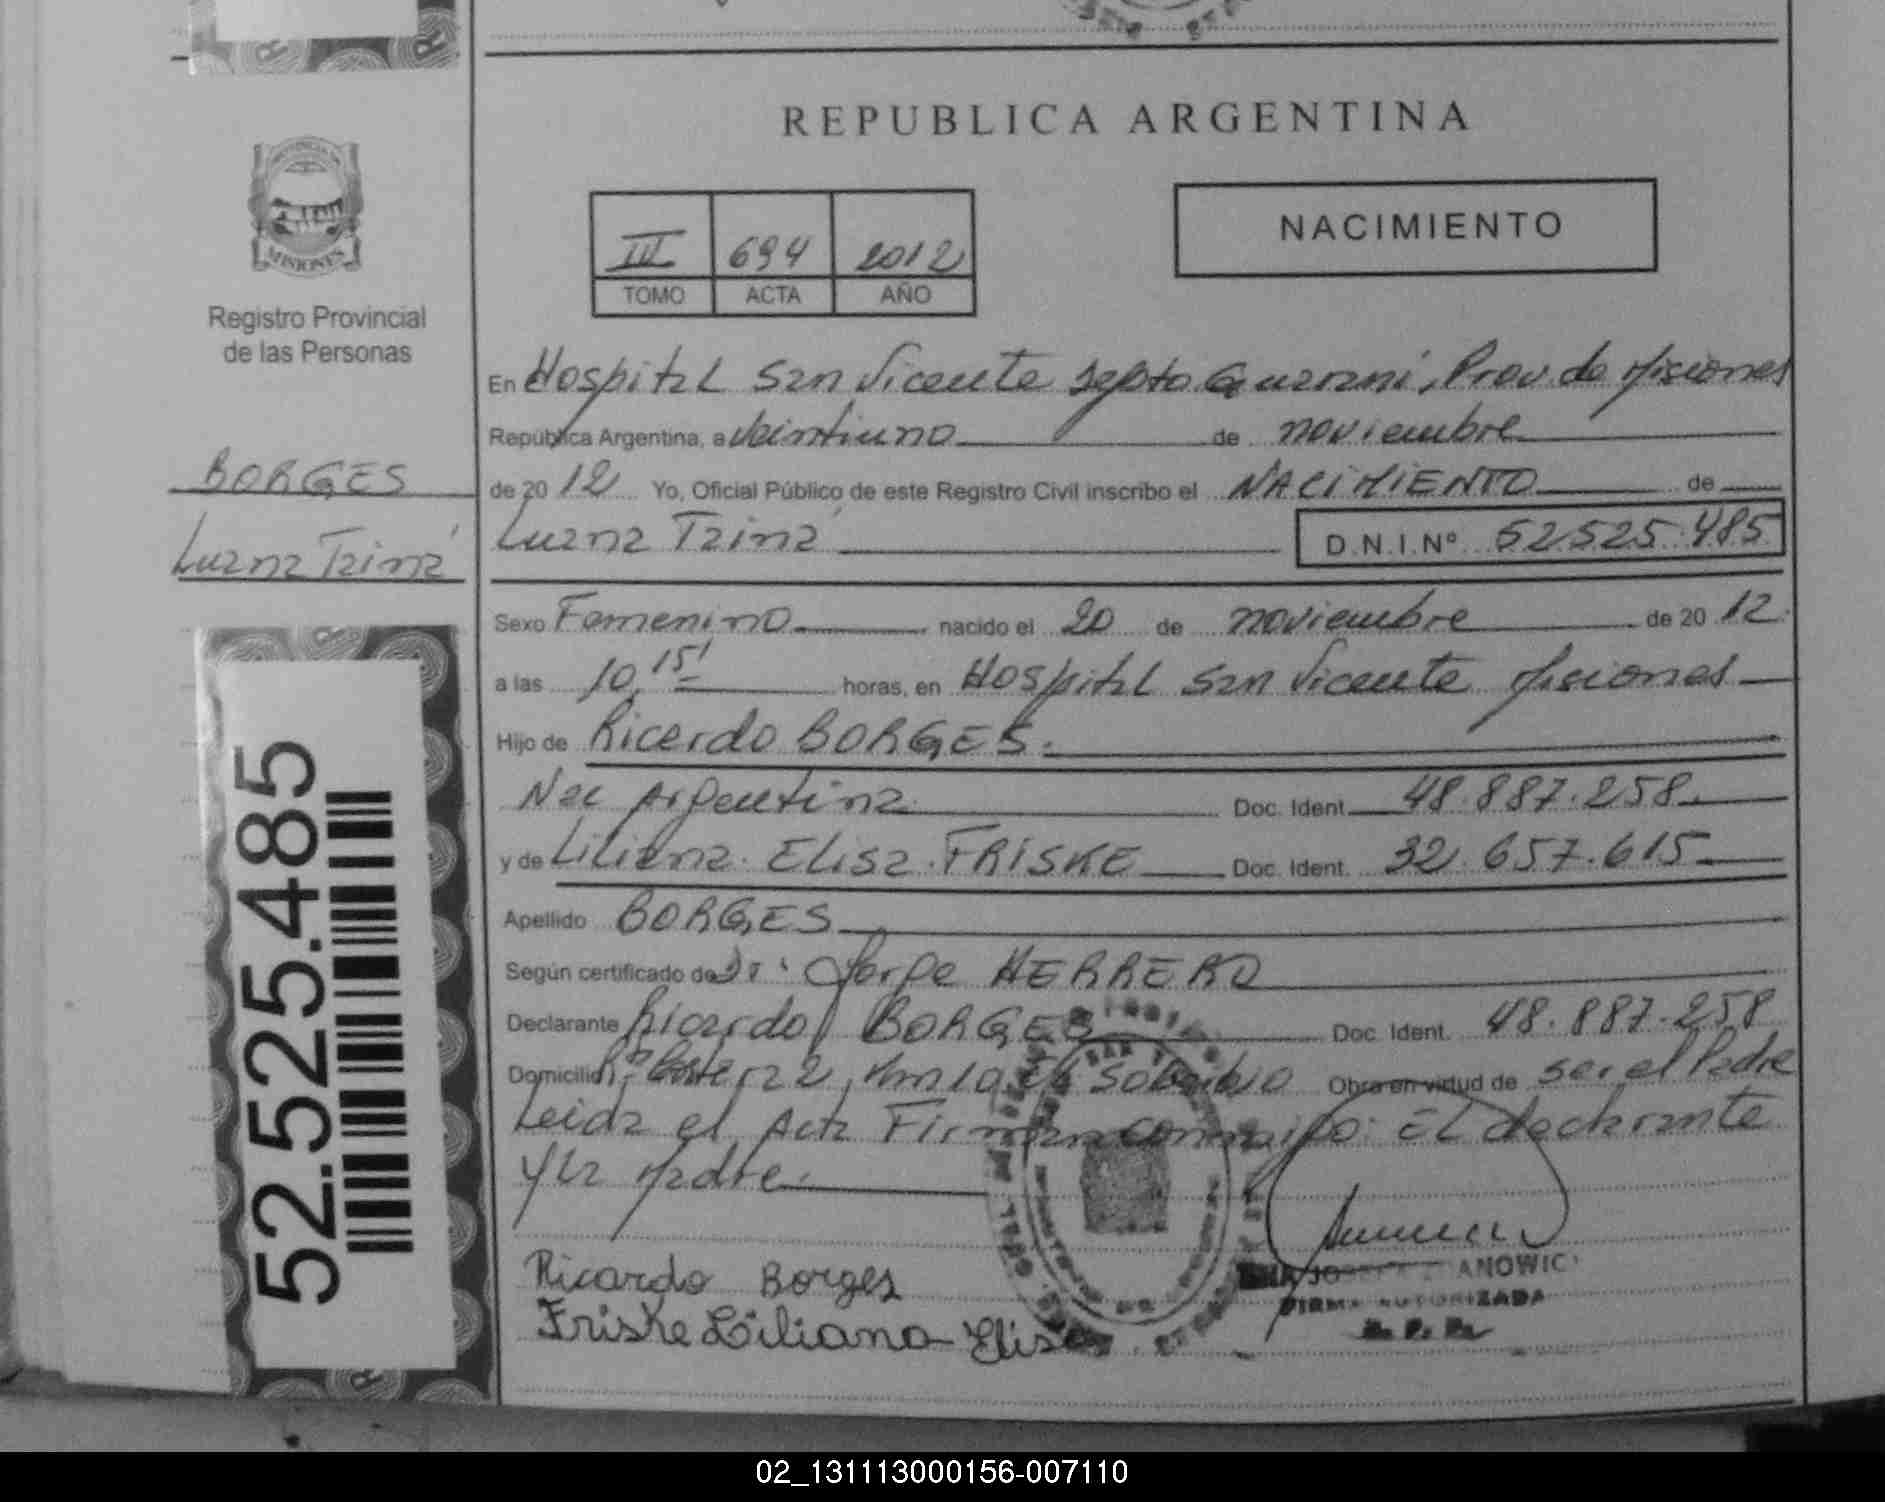 REPUBLICA ARGENTINA
III 694 2012
TOMO ACTA AÑO
NACIMIENTO
MISIONES
Registro Provincial
de las Personas
BORGES
Luana Tainá
52.525.485
En Hospital San Vicente Depto Guarani, Prov. de Misiones
República Argentina, a veintiuno de noviembre
de 20 12 Yo, Oficial Público de este Registro Civil inscribo el NACIMIENTO de
Luana Tainá D.N.I.Nº 52.525.485
Sexo Femenino nacido el 20 de noviembre de 20 12.
a las 10,15' horas, en Hospital San Vicente Misiones
Hijo de Ricardo BORGES.
Nac Argentina Doc. Ident. 48.887.258
y de Liliana Elisa FRISKE Doc. Ident. 32.657.615
Apellido BORGES
Según certificado de Dr. Jorge HERRERO
Declarante Ricardo BORGES Doc. Ident. 48.887.258
Domicilio 22, Km 10 El Soberbio Obra en virtud de ser el Padre
Leida el Acta Firman conmigo: El declarante
y la madre.
Ricardo Borges
Friske Liliana Elisa
FIRMA AUTORIZADA
R. P. P.
02_131113000156-007110